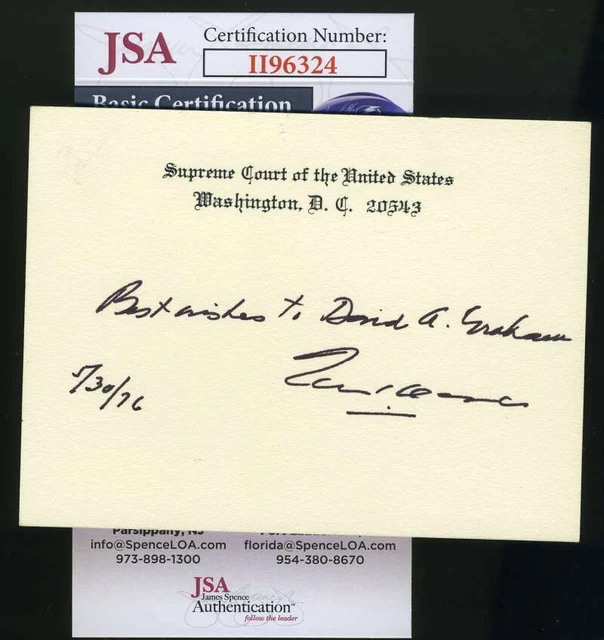 JSA
Certification Number:
II96324
Basic Certification
Supreme Court of the United States
Washington, D. C. 20543
Best wishes to David A. Graham
7/30/76
Parsippany, NJ
info@SpenceLOA.com
973-898-1300
florida@SpenceLOA.com
954-380-8670
JSA
James Spence
Authentication
follow the leader